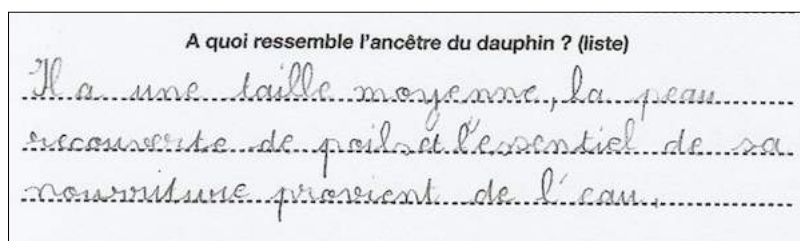 A quoi ressemble l'ancêtre du dauphin ? (liste)
Il a une taille moyenne, la peau
recouverte de poils et l'essentiel de sa
nourriture provient de l'eau.